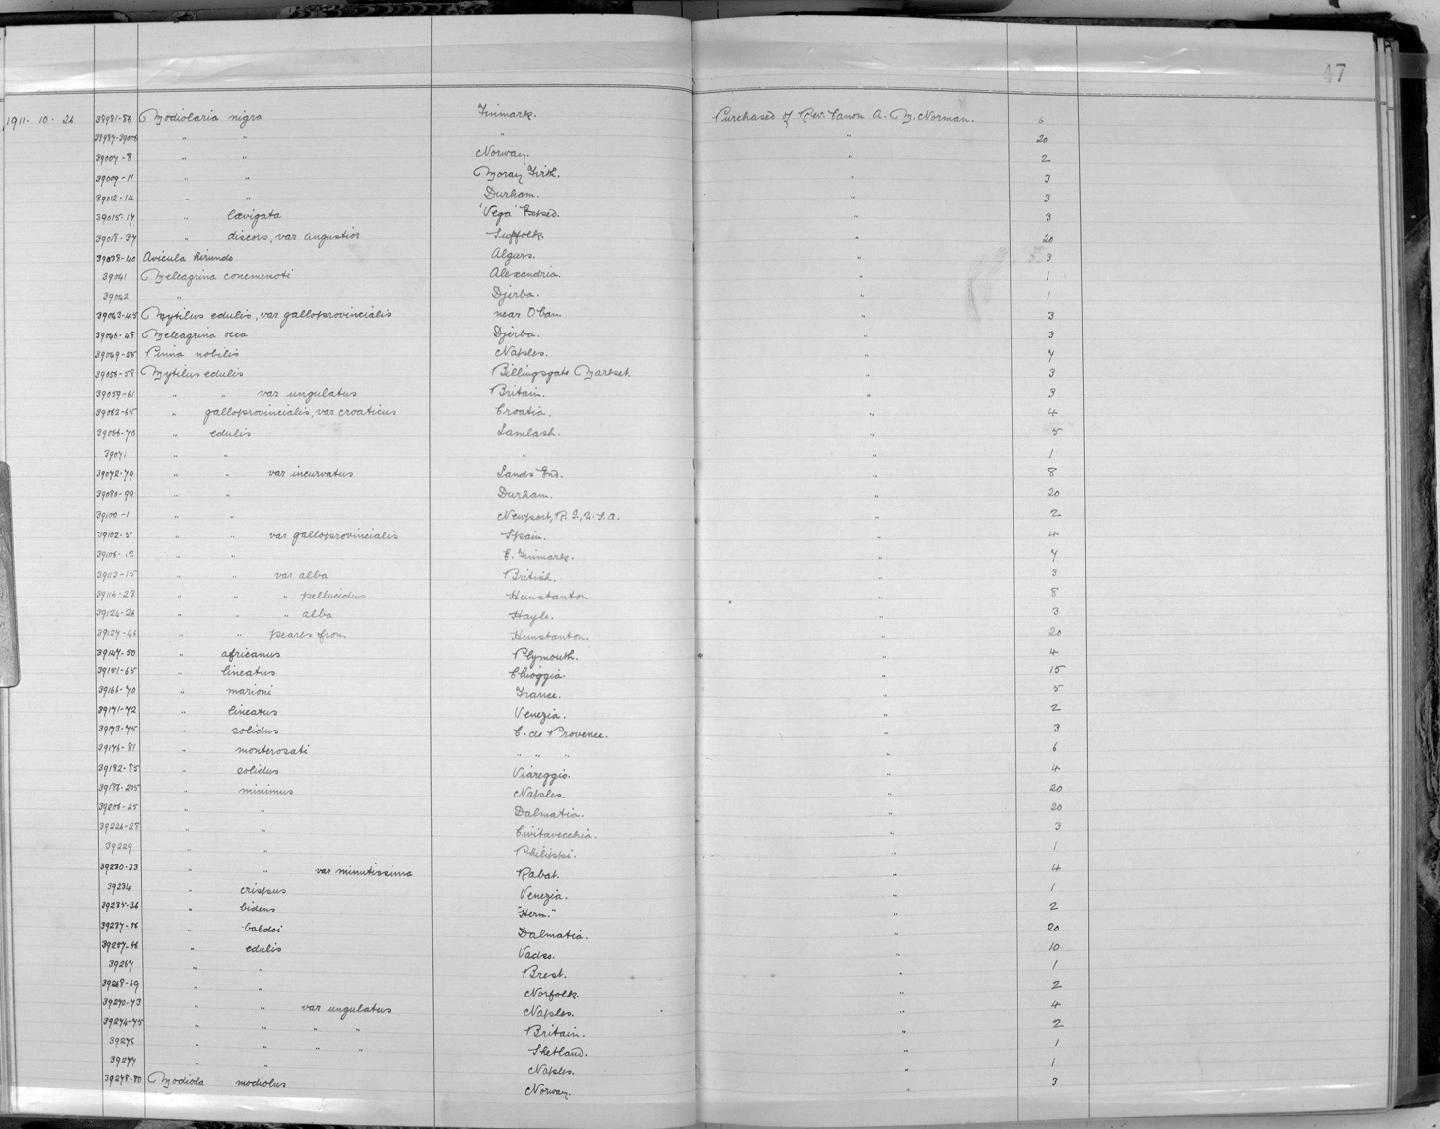 47
1911. 10. 26 38981-86 Modiolaria nigra Finmark. Purchased of Rev. Canon A. M. Norman. 6
38987-39006 " " " " 20
39007-8 " " Norway. " 2
39009-11 " " Moray Firth. " 3
39012-14 " " Durham. " 3
39015-17 " lævigata 'Vega' Exped. " 3
39018-37 " discors, var angustior Suffolk. " 20
39038-40 Avicula hirundo Algiers. " 3
39041 Meleagrina conemenoti Alexandria. " 1
39042 " Djerba. " 1
39043-45 Mytilus edulis, var galloprovincialis near Oban. " 3
39046-48 Meleagrina occa Djerba. " 3
39049-55 Pinna nobilis Naples. " 7
39056-58 Mytilus edulis Billingsgate Market. " 3
39059-61 " " var ungulatus Britain. " 3
39062-65 " galloprovincialis, var croaticus Croatia. " 4
39066-70 " edulis Lamlash. " 5
39071 " " " " 1
39072-79 " " var incurvatus Lands End. " 8
39080-99 " " Durham. " 20
39100-1 " " Newport, R. I., U.S.A. " 2
39102-5 " " var galloprovincialis Spain. " 4
39106-12 " " E. Finmark. " 7
39113-15 " " var alba British. " 3
39116-23 " " " pellucidus Hunstanton " 8
39124-26 " " " alba Hayle. " 3
39127-46 " " pearls from Hunstanton. " 20
39147-50 " africanus Plymouth. " 4
39151-65 " lineatus Chioggia. " 15
39166-70 " marioni France. " 5
39171-72 " lineatus Venezia. " 2
39173-75 " solidus E. de Provence. " 3
39176-81 " monterosati " " " " 6
39182-85 " solidus Viareggio. " 4
39186-205 " minimus Naples. " 20
39206-25 " " Dalmatia. " 20
39226-28 " " Civitavecchia. " 3
39229 " " Philippi. " 1
39230-33 " " var minutissima Rabat. " 4
39234 " crispus Venezia. " 1
39235-36 " bidens "Herm." " 2
39237-56 " baldoi Dalmatia. " 20
39257-66 " edulis Vadso. " 10
39267 " " Brest. " 1
39268-69 " " Norfolk. " 2
39270-73 " " var ungulatus Naples. " 4
39274-75 " " " " Britain. " 2
39276 " " " " Shetland. " 1
39277 " " Naples. " 1
39278-80 Modiola modiolus Norway. " 3